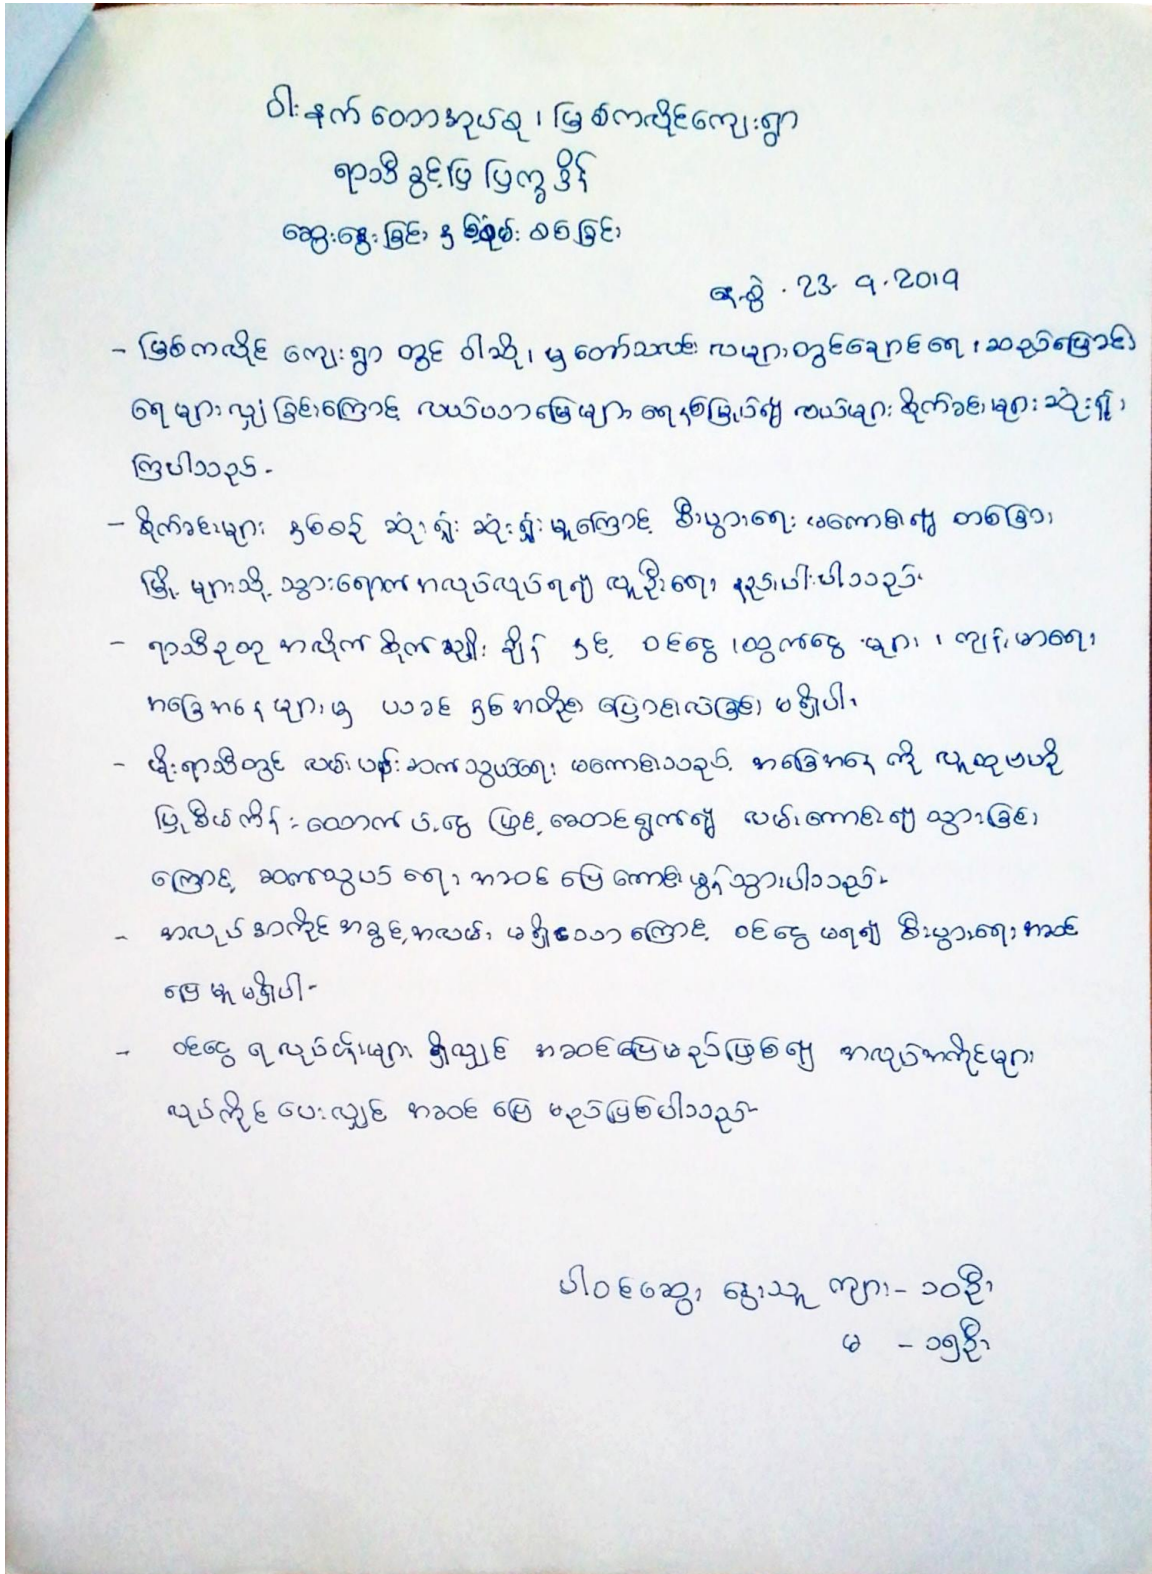 ဝါးနက်တောအုပ်စု၊ မြစ်ကလိုင်ကျေးရွာ
ရာသီခွင့်ပြ ပြက္ခဒိန်
ဆွေးနွေးခြင်း နှစ်စစ်ခြင်း
နေ့စွဲ . 23. 9. 2019
- မြစ်ကလိုင် ကျေးရွာ တွင် ဝါဆို၊ မှ တော်သလင်း လများတွင်ချောင်းရေ၊ ဆည်မြောင်း
ရေများလျှံခြင်းကြောင့် လယ်ယာမြေများ ရေနစ်မြုပ်၍ လယ်များ စိုက်ခင်းများ ဆုံးရှုံး
ကြပါသည်-
- စိုက်ခင်းများ နှစ်စဉ် ဆုံးရှုံး ဆုံးရှုံးမှုကြောင့် စီးပွားရေး မကောင်း၍ တစ်ခြား
မြို့များသို့ သွားရောက်အလုပ်လုပ်ရ၍ လူဦးရေ နည်းပါးပါသည်-
- ရာသီဥတု အလိုက် စိုက်ပျိုး ချိန် နှင့် ဝင်ငွေ ၊ထွက်ငွေ များ ၊ ကျန်းမာရေး
အခြေအနေ များမှ ယခင် နှစ်အတိုင်း ပြောင်းလဲခြင်း မရှိပါ။
- မိုးရာသီတွင် လမ်းပန်းဆက်သွယ်ရေး မကောင်းသည့် အခြေအနေ ကို လူထုဗဟို
ပြုစီမံကိန်း ထောက်ပံ့ငွေ ဖြင့် ဆောင်ရွက်၍ လမ်းကောင်း၍ သွားခြင်း
ကြောင့် ဆက်သွယ် ရေး အဆင် ပြေ ကောင်းမွန် သွားပါသည်-
- အလုပ် အကိုင် အခွင့်အလမ်း မရှိသော ကြောင့် ဝင်ငွေ မရ၍ စီးပွားရေး အဆင်
ပြေ မှု မရှိပါ-
- ဝင်ငွေ ရ လုပ်ငန်းများ ရှိလျှင် အဆင်ပြေမည်ဖြစ်၍ အလုပ်အကိုင်များ
လုပ်ကိုင် ပေးလျှင် အဆင် ပြေ မည်ဖြစ်ပါသည်-
ပါဝင်ဆွေး နွေးသူ ကျား - ၁၀ဦး
မ - ၁၅ဦး